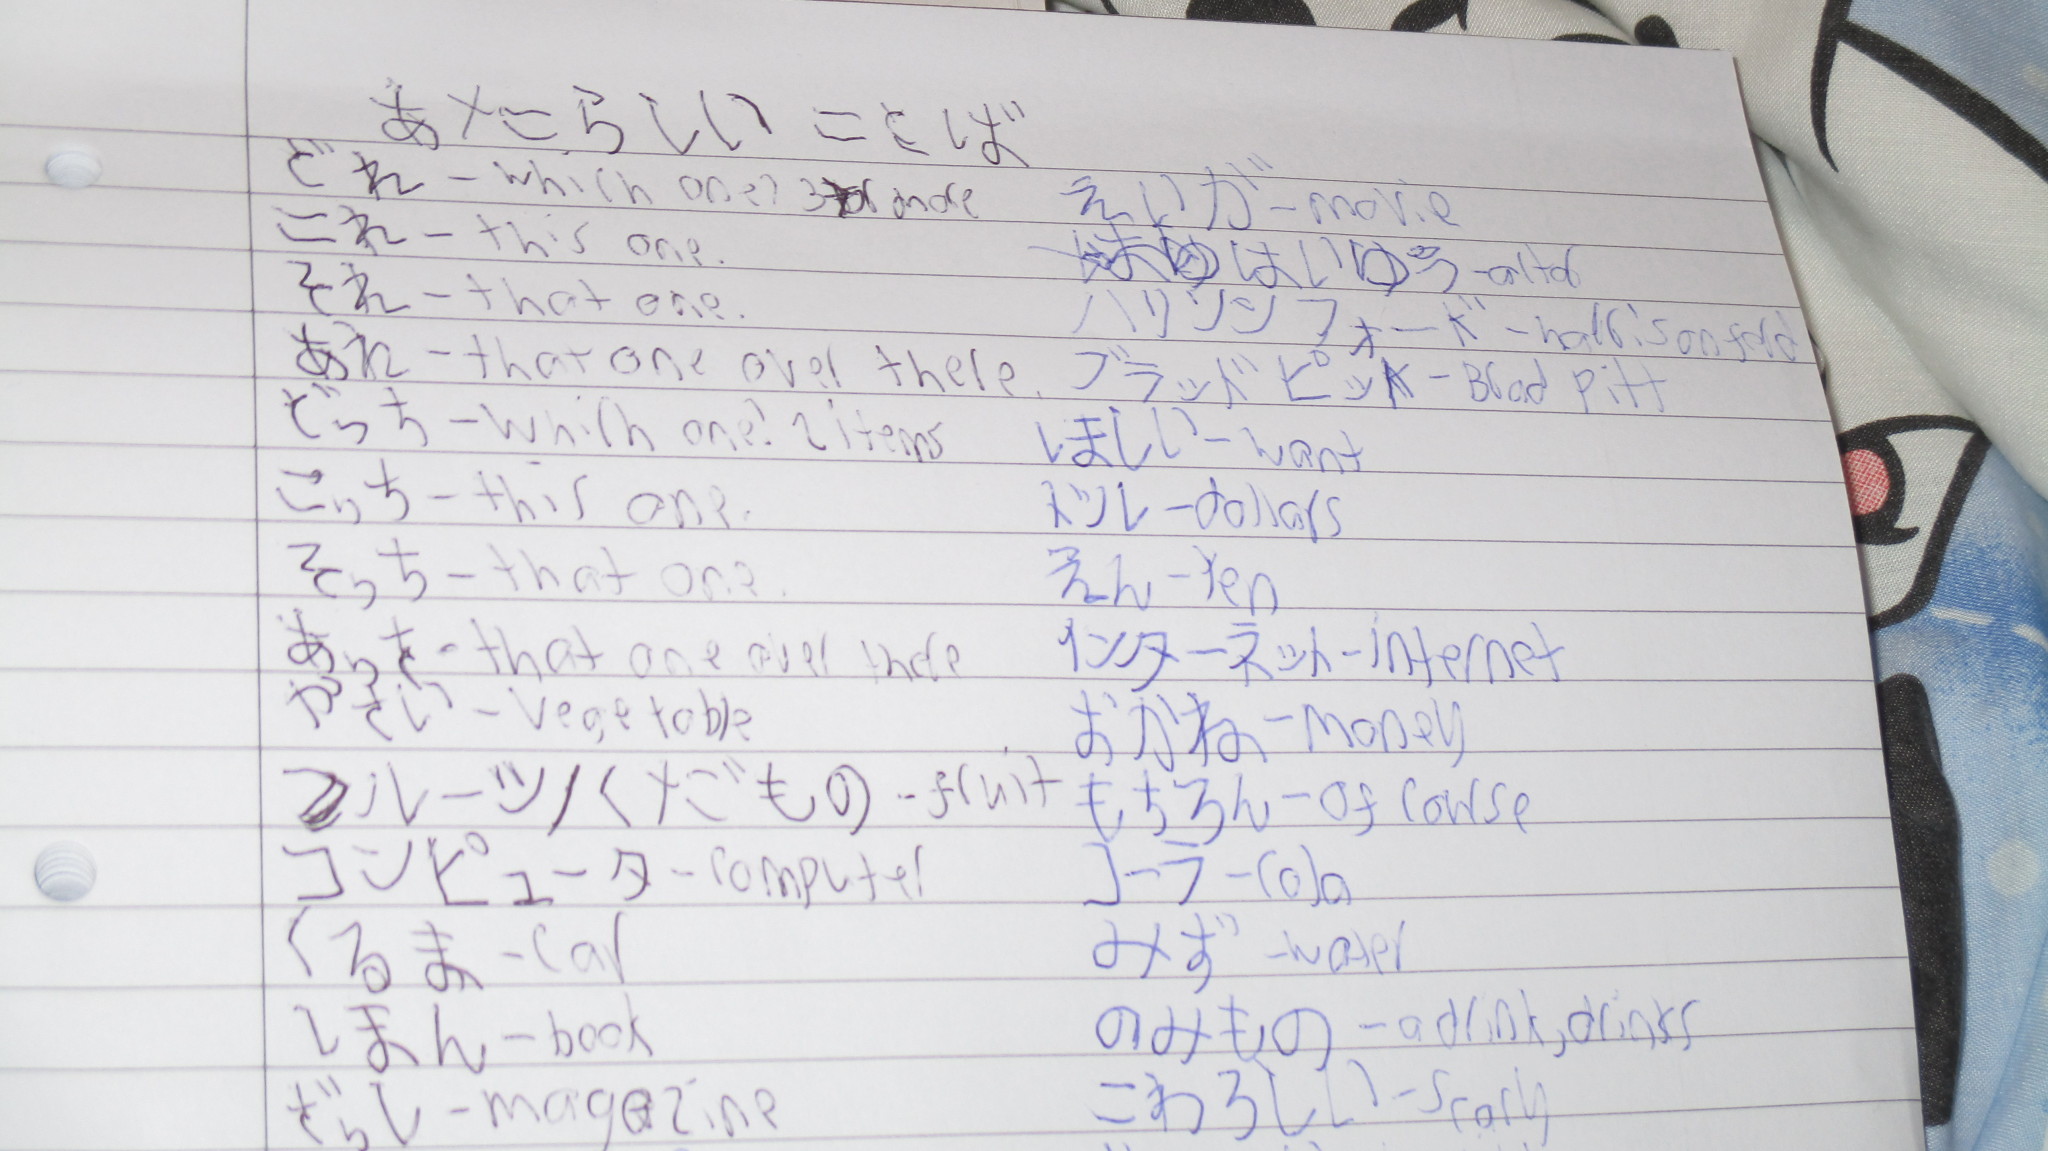 あたらしい ことば
どれ - which one? 3 or more
これ - this one.
それ - that one.
あれ - that one over there.
どっち - which one? 2 items
こっち - this one.
そっち - that one.
あっち - that one over there
やさい - vegetable
フルーツ/くだもの - fruit
コンピュータ - computer
くるま - car
ほん - book
ざっし - magazine
えいが - movie
はいゆう -
ハリソンフォード - harrison ford
ブラッドピット - Brad Pitt
ほしい - want
ドル - dollars
えん - Yen
インターネット - internet
おかね - money
もちろん - of course
コーラ - cola
みず - water
のみもの - a drink, drinks
- scary